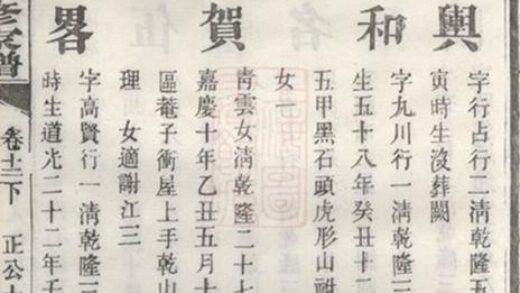 輿
字行占行二清乾隆五
寅時生沒葬闕
和
字九川行一清乾隆三
生五十八年癸丑十二
五甲黑石頭虎形山祔
女一
賀
青雲女清乾隆二十七
嘉慶十年乙丑五月十
區菴子衝屋上手乾山
理 女適謝江三
畧
字高賢行一清乾隆三
時生道光二十二年壬
修家譜
卷十二下 正公